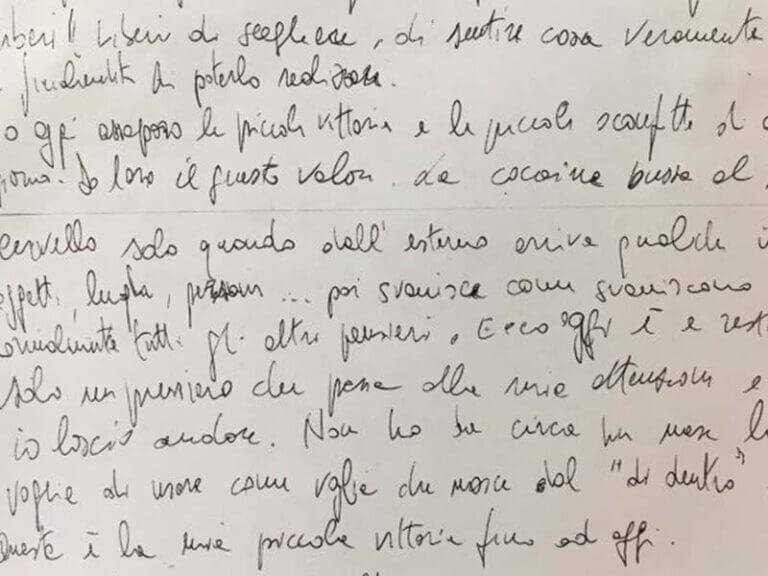 liberi!! Liberi di scegliere, di sentire cosa veramente
di poterlo realizzare.
o oggi assaporo le piccole vittorie e le piccole sconfitte di
giorno. Do loro il giusto valore. La cocaina bussa al
cervello solo quando dall'esterno arriva qualche
oggetti, luoghi, persone... poi svanisce come svaniscono
tutti gli altri pensieri. Ecco oggi è e
solo un pensiero che passa alla mia attenzione e
io lascio andare. Non ho da circa un mese
voglia di usare come voglia che nasce dal "di dentro"
Questa è la mia piccola vittoria fino ad oggi.